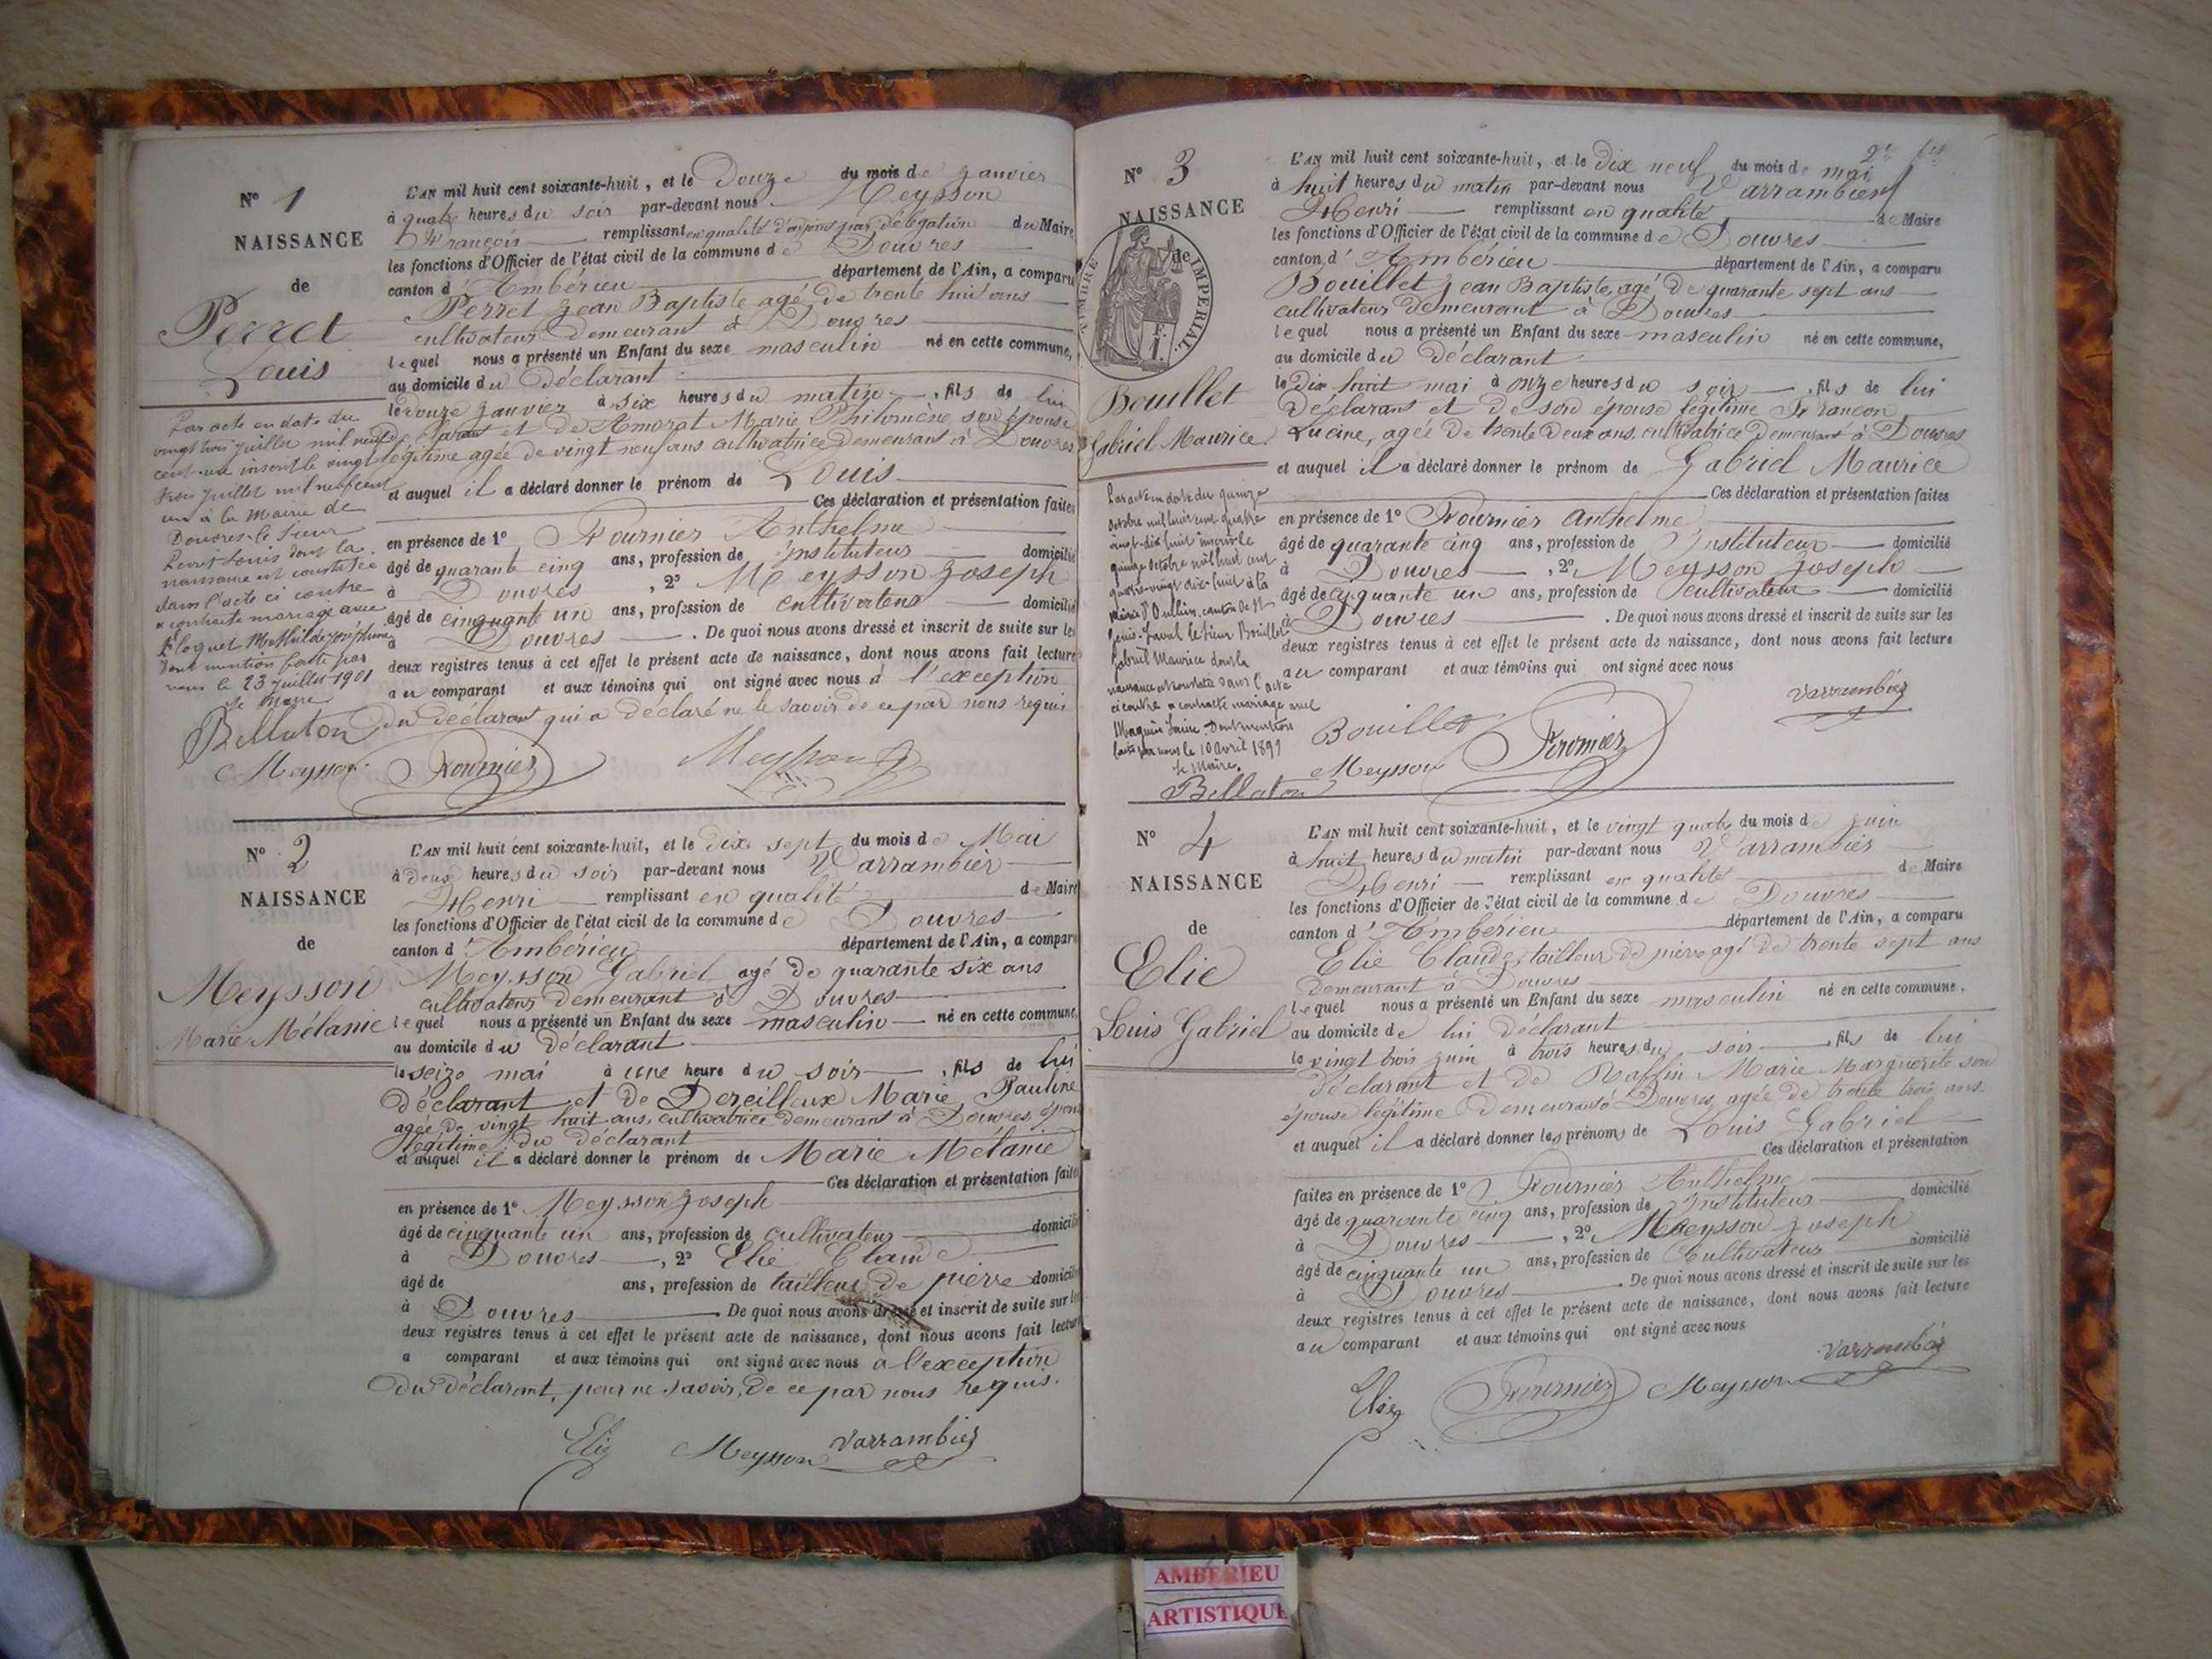 N° 1
NAISSANCE
de
Perret
Louis
Par acte en date du
vingt trois Juillet mil neuf
cent un inscrit le vingt
trois Juillet mil neuf cent
un à la Mairie de
Douvres le sieur
Perret Louis dont la
naissance est constatée
dans l'acte ci contre
a contracté mariage avec
Mathilde Joséphine
dont mention faite par
nous le 23 juillet 1901
Le Maire
Belluton
L'AN mil huit cent soixante-huit, et le Douze du mois de Janvier
à quatre heures du soir par-devant nous Meysson
François remplissant en qualité d'adjoint par délégation du Maire
les fonctions d'Officier de l'état civil de la commune de Douvres
canton d'Ambérieu département de l'Ain, a comparu
Perret Jean Baptiste agé de trente huit ans
cultivateur demeurant à Douvres
lequel nous a présenté un Enfant du sexe masculin né en cette commune,
au domicile du déclarant
le douze Janvier à six heures du matin, fils de lui
déclarant et de Amorat Marie Philomène son épouse
légitime agée de vingt neuf ans cultivatrice demeurant à Douvres
et auquel il a déclaré donner le prénom de Louis
Ces déclaration et présentation faites
en présence de 1° Fournier Anthelme
âgé de quarante cinq ans, profession de Instituteur domicilié
à Douvres, 2° Meysson Joseph
âgé de cinquante un ans, profession de cultivateur domicilié
à Douvres. De quoi nous avons dressé et inscrit de suite sur les
deux registres tenus à cet effet le présent acte de naissance, dont nous avons fait lecture
au comparant et aux témoins qui ont signé avec nous à l'exception
du déclarant qui a déclaré ne le savoir de ce par nous requis
Meysson Fournier Meysson
N° 2
NAISSANCE
de
Meysson
Marie Mélanie
L'AN mil huit cent soixante-huit, et le dix sept du mois de Mai
à deux heures du soir par-devant nous Varrambier
Henri remplissant en qualité de Maire
les fonctions d'Officier de l'état civil de la commune de Douvres
canton d'Ambérieu département de l'Ain, a comparu
Meysson Gabriel agé de quarante six ans
cultivateur demeurant à Douvres
lequel nous a présenté un Enfant du sexe masculin né en cette commune,
au domicile du déclarant
le seize mai à une heure du soir, fils de lui
déclarant et de Dereilleux Marie Pauline
agée de vingt huit ans, cultivatrice demeurant à Douvres, épouse
légitime du déclarant
et auquel il a déclaré donner le prénom de Marie Mélanie
Ces déclaration et présentation faites
en présence de 1° Meysson Joseph
âgé de cinquante un ans, profession de cultivateur domicilié
à Douvres, 2° Elie Claude
âgé de ans, profession de tailleur de pierre domicilié
à Douvres. De quoi nous avons dressé et inscrit de suite sur les
deux registres tenus à cet effet le présent acte de naissance, dont nous avons fait lecture
a comparant et aux témoins qui ont signé avec nous à l'exception
du déclarant, pour ne savoir, de ce par nous requis.
Elie Meysson Varrambier
N° 3
NAISSANCE
de
TIMBRE IMPERIAL
Bouillet
Gabriel Maurice
Par acte en date du quinze
octobre mil huit cent quatre
vingt-dix huit inscrit le
quinze octobre mil huit cent
quatre-vingt dix-huit à la
mairie d'Oullins, canton de St
Genis-Laval le sieur Bouillet
Gabriel Maurice dont la
naissance est constatée dans l'acte
ci contre a contracté mariage avec
Maguin Louise. Dont mention
faite par nous le 10 Avril 1899
Le Maire.
Belluton
L'AN mil huit cent soixante-huit, et le dix neuf du mois de mai
à huit heures du matin par-devant nous Varrambier
Henri remplissant en qualité de Maire
les fonctions d'Officier de l'état civil de la commune de Douvres
canton d'Ambérieu département de l'Ain, a comparu
Bouillet Jean Baptiste, agé de quarante sept ans
cultivateur demeurant à Douvres
lequel nous a présenté un Enfant du sexe masculin né en cette commune,
au domicile du déclarant
le dix huit mai à onze heures du soir, fils de lui
déclarant et de son épouse légitime Francon
Lucine, agée de trente deux ans, cultivatrice demeurant à Douvres
et auquel il a déclaré donner le prénom de Gabriel Maurice
Ces déclaration et présentation faites
en présence de 1° Fournier Anthelme
âgé de quarante cinq ans, profession de Instituteur domicilié
à Douvres, 2° Meysson Joseph
âgé de cinquante un ans, profession de cultivateur domicilié
à Douvres. De quoi nous avons dressé et inscrit de suite sur les
deux registres tenus à cet effet le présent acte de naissance, dont nous avons fait lecture
au comparant et aux témoins qui ont signé avec nous
Varrambier
Bouillet Fournier
Meysson
N° 4
NAISSANCE
de
Elie
Louis Gabriel
L'AN mil huit cent soixante-huit, et le vingt quatre du mois de juin
à huit heures du matin par-devant nous Varrambier
Henri remplissant en qualité de Maire
les fonctions d'Officier de l'état civil de la commune de Douvres
canton d'Ambérieu département de l'Ain, a comparu
Elie Claude, tailleur de pierre agé de trente sept ans
demeurant à Douvres
lequel nous a présenté un Enfant du sexe masculin né en cette commune,
au domicile de lui déclarant
le vingt trois juin à trois heures du soir, fils de lui
déclarant et de Raffin Marie Marguerite son
épouse légitime demeurant à Douvres, agée de trente trois ans.
et auquel il a déclaré donner les prénoms de Louis Gabriel
Ces déclaration et présentation
faites en présence de 1° Fournier Anthelme
âgé de quarante cinq ans, profession de Instituteur domicilié
à Douvres, 2° Meysson Joseph
âgé de cinquante un ans, profession de Cultivateur domicilié
à Douvres. De quoi nous avons dressé et inscrit de suite sur les
deux registres tenus à cet effet le présent acte de naissance, dont nous avons fait lecture
au comparant et aux témoins qui ont signé avec nous
Varrambier
Elie Fournier Meysson
AMBERIEU
ARTISTIQUE